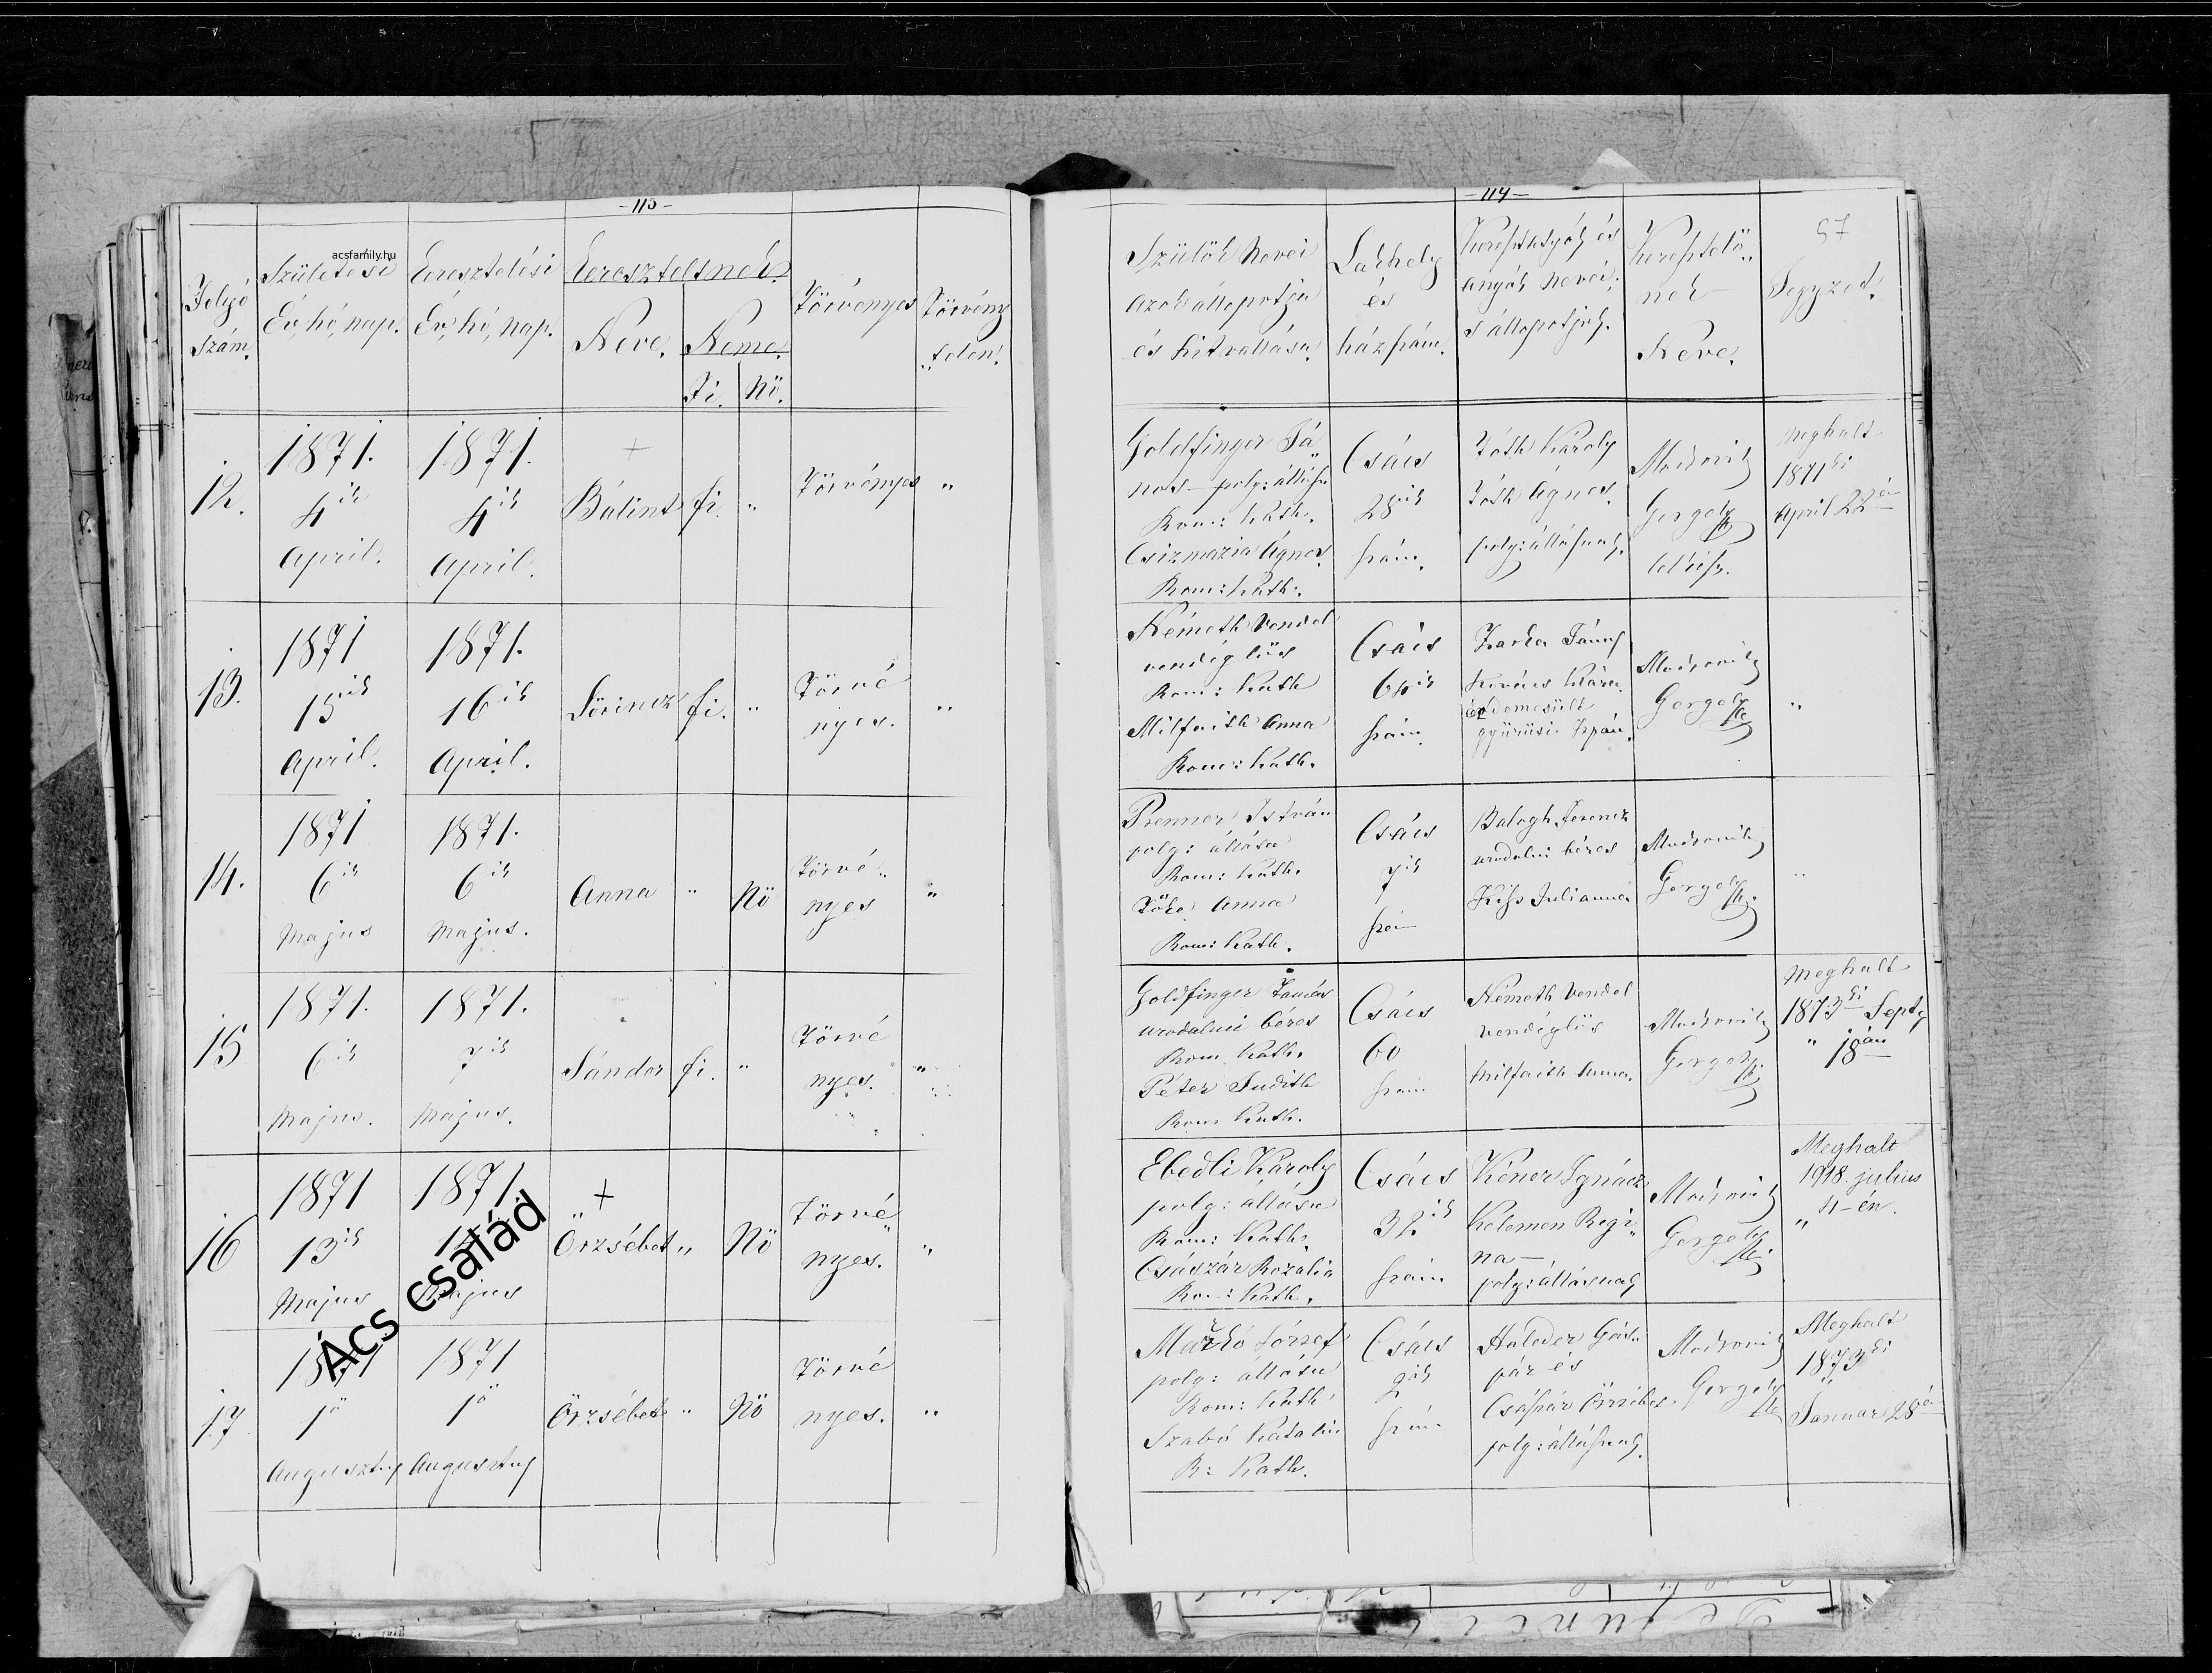 - 113 -
Folyó
szám.
Születesi
Év, hó, nap.
Keresztelési
Év, hó, nap.
Kereszteltnek
Neve.
Neme.
Fi.
Nő.
Törvényes
Törvény
„telen.
acsfamily.hu
12.
1871.
4ik
April.
1871.
4ik
April.
+
Bálint
fi.
„
Törvényes
„
13.
1871
15ik
April.
1871.
16ik
April.
Lőrincz
fi.
„
Törvé
nyes.
„
14.
1871
6ik
Majus
1871.
6ik
Majus.
Anna
„
Nő
Törvé„
nyes
„
15
1871.
6ik
Majus.
1871.
7ik
Majus.
Sándor
fi.
„
Törvé
nyes.
„
16
1871
13ik
Majus
1871
Majus
+
Örzsébet
„
Nő
Törvé„
nyes.
„
Ács család
17
1871
1ő
Augusztus
1871
1ő
Augusztus
Örzsébet
„
Nő
Törvé
nyes.
„
- 114 -
57
Szülők Nevei
azok állapotja
és hitvallása.
Lakhely
és
házszám.
Keresztatyák és
anyák nevei.
s állapotjuk.
Keresztelő„
nek
Neve.
Jegyzet.
Goldfinger Já„
nos polg: állásu
Rom: Kath.
Csizmazia Ágnes
Rom: Kath.
Csács
28ik
szám.
Tóth Károly
Tóth Ágnes
polg: állásuak.
Modrovits
Gergely
Meghalt
1871ki
April 22én
Németh Vendel
vendéglős
Rom: Kath
Milfaith Anna
Rom: Kath.
Csács
szám.
Kovács Klára
gyürüsi Ispán.
Modrovits
Gergely
„
Prenner István
polg: állásu
Rom: Kath.
Tőke Anna
Rom: Kath.
Csács
7ik
szám
Balogh Ferencz
uradalmi béres
Kiss Julianna
Modrovits
Gergely
„
Goldfinger Tamás
uradalmi béres
Rom Kath.
Péter Judith
Rom Kath.
Csács
60
szám
Németh Vendel
vendéglős
Milfaith Anna.
Modrovits
Gergely
Meghalt
1873ki Septg
„ 18án
Ebedli Károly
polg: állásu
Rom: Kath.
Császár Rozália
Rom: Kath.
Csács
32ik
szám
Kéner Ignácz
Kelemen Regi„
na
polg: állásuak
Modrovits
Gergely
Meghalt
1918. julius
„ 4-én.
Markó József
polg: állásu
Rom: Kath
Szabó Katalin
R: Kath.
Csács
2ik
szám
Haloder Gás„
pár és
Császár Örzsébet
polg: állásuak.
Modrovits
Gergely
Meghalt
1873ki
Januar 28án